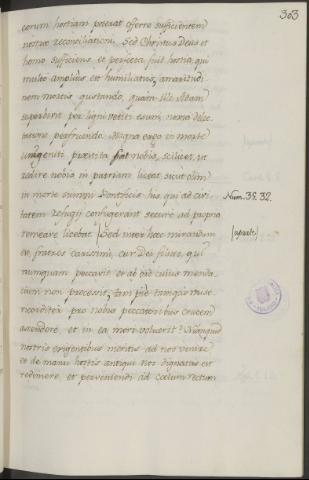 303
eorum hostiam poterat offerre sufficientem
nostræ reconciliationi. Sed Christus Deus et
homo sufficiens et perfecta fuit hostia, qui
multo amplius est humiliatus, amaritudi
nem mortis gustando, quam ille Adam
superbierit per ligni vetiti esum noxia delec
tatione perfruendo. Magna ergo in morte
unigeniti præstita sunt nobis, scilicet, ut
redire nobis in patriam liceat, sicut olim
in morte summi Pontificis his, qui ad civi
tatem refugii confugerant secure ad propria
remeare licebat. Sed inter hæc mirandum
est, fratres carissimi, cur Dei filius, qui
nunquam peccavit et ab ore cuius menda
cium non processit, tam pie tamque mise
ricorditer pro nobis peccatoribus crucem
ascendere, et in ea mori voluerit? Nunquid
nostris exigentibus meritis ad nos venire
et de manu hostis antiqui nos dignatus est
redimere, et perveniendi ad cœlum rectum
Num. 35. 32.
(aparte)